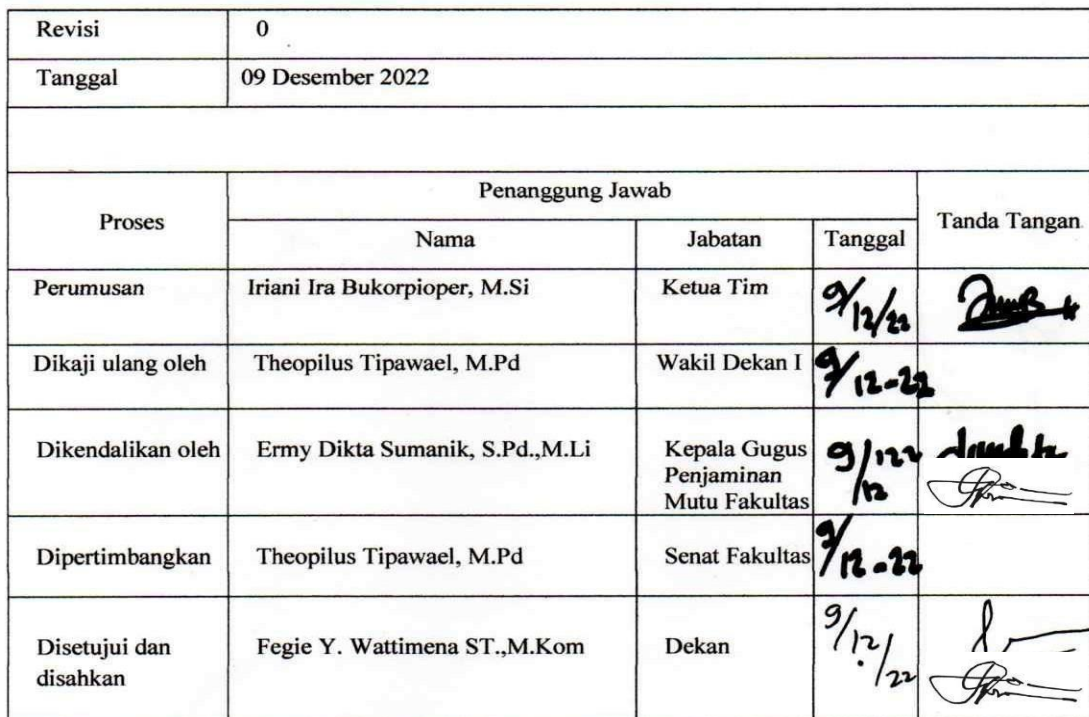 Revisi 0
Tanggal 09 Desember 2022
Proses Penanggung Jawab Tanda Tangan
Nama Jabatan Tanggal
Perumusan Iriani Ira Bukorpioper, M.Si Ketua Tim 9/12/22
Dikaji ulang oleh Theopilus Tipawael, M.Pd Wakil Dekan I 9/12-22
Dikendalikan oleh Ermy Dikta Sumanik, S.Pd.,M.Li Kepala Gugus
Penjaminan
Mutu Fakultas
Dipertimbangkan Theopilus Tipawael, M.Pd Senat Fakultas 9/12-22
Disetujui dan
disahkan Fegie Y. Wattimena ST.,M.Kom Dekan 9/12/22